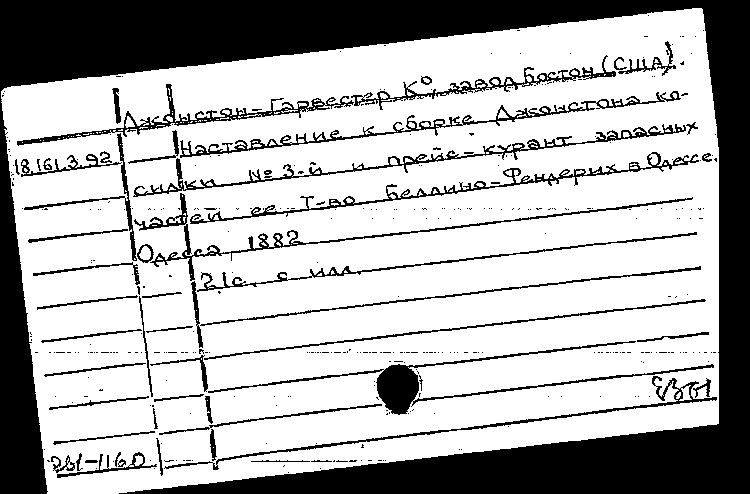 Джонстон-Гарвестер К⁰, завод Бостон (США).
18.161.3.92
Наставление к сборке Джонстона ко-
силки № 3-й и прейс-курант запасных
частей ее, Т-во Беллино-Фендерих в Одессе.
Одесса, 1882
21с. с илл.
261-1160